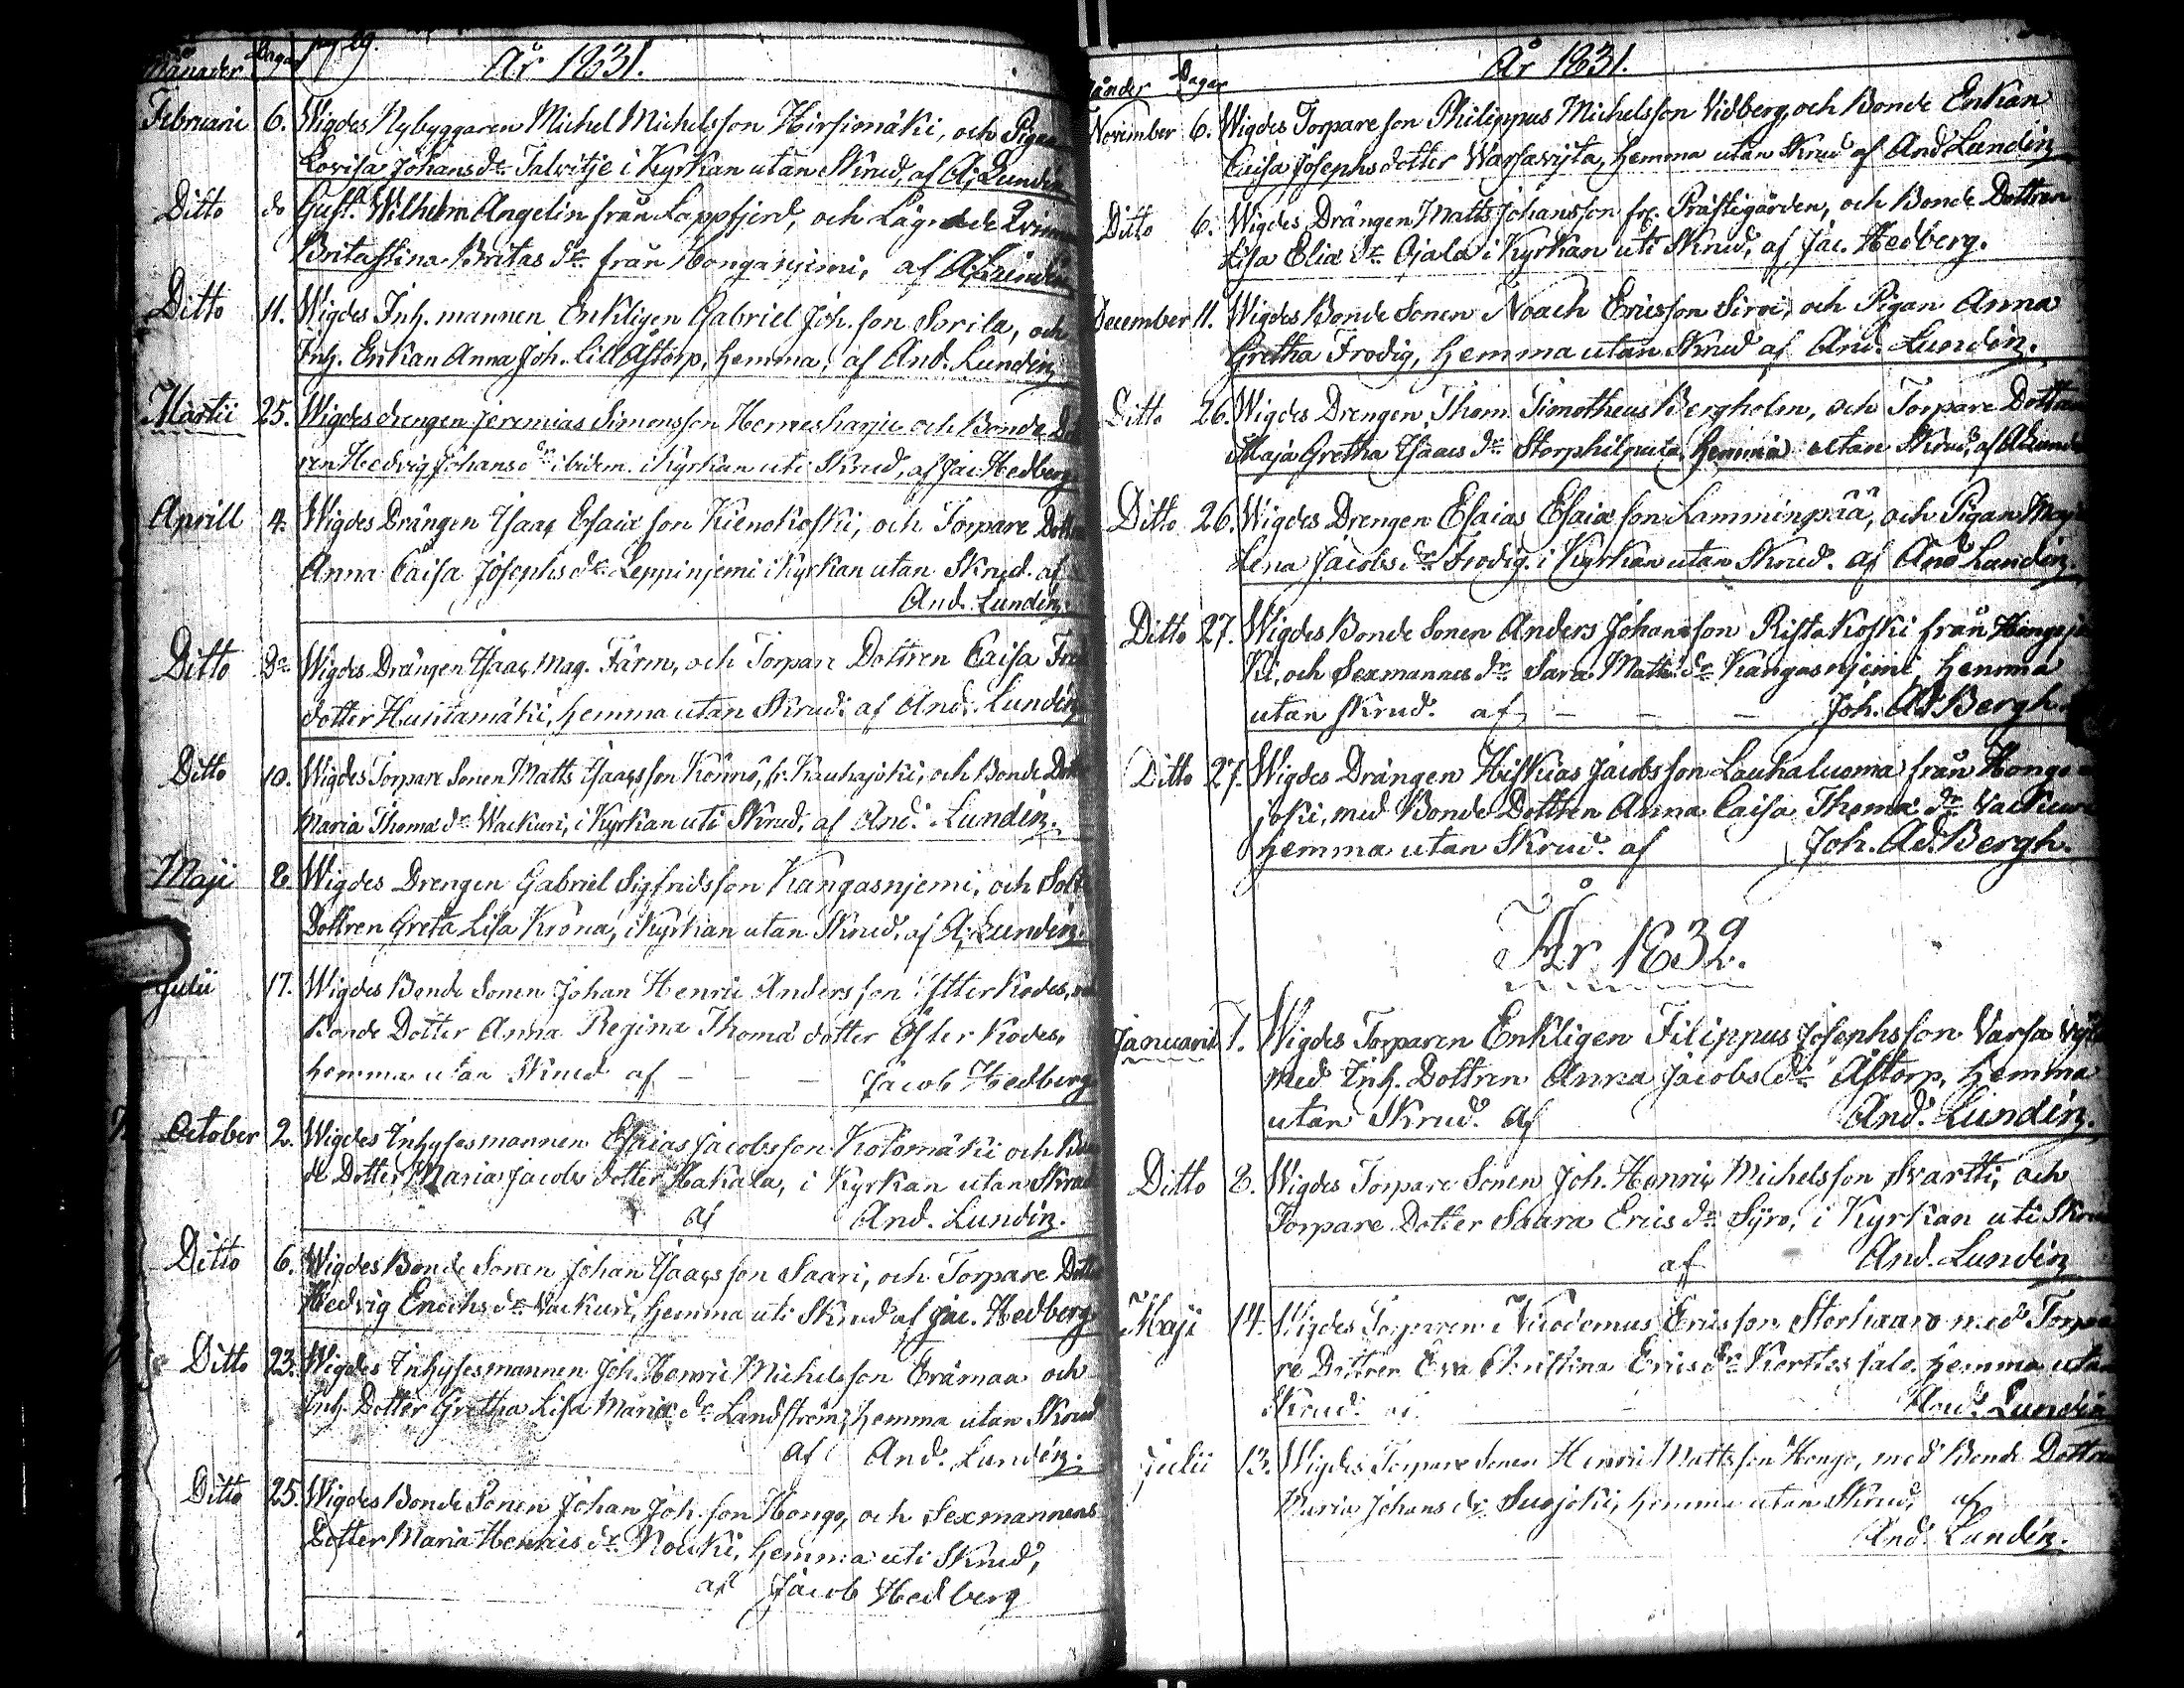 Månader Dagar pag 29.
År 1831.
Februarii 6. Wigdes Nybyggaren Michel Michelsson Hirsimäki, och Pigan
Lovisa Johans dr. Talvitje i Kyrkan utan Skrud, af A: Lundin
Ditto do Gust. Wilhelm Angelin från Lappfjerd, och Lägrade Qvinn
Brita Stina Britas dr. från Honganjemi, af A. Lundin
Ditto 11. Wigdes Inh. mannen Enklingen Gabriel Joh. son Sorila, och
Inh. Enkan Anna Joh. Lill Åstorp, hemma, af And. Lundin
Martii 25. Wigdes drengen Jeremias Simonsson Hermesharju och Bonde Dott
ren Hedvig Johans dr. ibidem. i Kyrkan uti Skrud, af Jac. Hedberg
Aprill 4. Wigdes Drängen Isaac Esaiæ son Kienokoski, och Torpare Dottren
Anna Caisa Josephs dr. Leppinjemi i Kyrkan utan Skrud. af
And. Lundin.
Ditto Do Wigdes Drängen Isaac Mag. Färm, och Torpare Dottren Caisa
dotter Huntamäki, hemma utan Skrud. af And. Lundin
Ditto 10. Wigdes Torpare Sonen Matts Isaacsson Könnö, fr. Kauhajoki, och Bonde Dott
Maria Thomæ dr. Wackuri, i Kyrkan uti Skrud, af And. Lundin.
Maji 8 Wigdes Drengen Gabriel Sigfridsson Kangasnjemi, och Sold
Dottren Greta Lisa Krona, i Kyrkan utan Skrud, af A. Lundin.
Julii 17. Wigdes Bonde Sonen Johan Henric Andersson Ytterkodes,
Bonde Dotter Anna Regina Thomæ dotter Öfterkodes,
hemma utan Skrud af – – – Jacob Hedberg
October 2. Wigdes Inhysesmannen Esaias Jacobsson Kotomäki och Bon
de Dotter Maria Jacobs dotter Hakala, i Kyrkan utan Skrud
af And. Lundin.
Ditto 6. Wigdes Bonde Sonen Johan Isaacsson Saari, och Torpare Dotter
Hedvig Enochs dr. Vackuri, hemma uti Skrud af Jac. Hedberg
Ditto 23. Wigdes Inhysesmannen Joh. Henric Michelsson Erämaa och
Inh. Dotter Gretha Lisa Mariæ dr. Landström, hemma utan Skrud
af And. Lundin.
Ditto 25. Wigdes Bonde Sonen Johan Joh. son Hongo, och Sexmannens
Dotter Maria Henrics dr. Nouki, hemma uti Skrud,
af Jacob Hedberg
År 1831.
Månader Dagar
November 6. Wigdes Torpare son Philippus Michelsson Vidberg, och Bonde Enkan
Caisa Josephs dotter Warsavijta, hemma utan Skrud af And. Lundin
Ditto 6. Wigdes Drängen Matts Johansson fr. Prästegården, och Bonde Dottren
Lisa Eliæ dr. Ojala i Kyrkan uti Skrud, af Jac. Hedberg.
December 11. Wigdes Bonde Sonen Noach Ericsson Siroi, och Pigan Anna
Gretha Frodig, hemma utan Skrud af And. Lundin.
Ditto 26. Wigdes Drengen Thom. Timotheus Bergholm, och Torpare Dottren
Maja Gretha Isaacs dr. Storphilpula hemma utan Skrud, af A. Lundin
Ditto 26. Wigdes Drengen Esaias Esaiæ son Lamminpää, och Pigan Maja
Lena Jacobs dr. Frodig. i Kyrkan utan Skrud. af And. Lundin.
Ditto 27. Wigdes Bonde Sonen Anders Johansson Ristakoski från Hongojo
ki, och Sexmannes dr. Sara Matts dr. Kangasnjemi, hemma
utan Skrud. af – – – Joh. Ad. Bergh.
Ditto 27. Wigdes Drängen Hiskias Jacobsson Laukaluoma från Hongo
joki, med Bonde Dottren Anna Caisa Thomæ dr. Vackuri
hemma utan Skrud. af Joh. Ad. Bergh.
År 1832.
Januarii 1. Wigdes Torparen Enklingen Filippus Josephsson Varsavijta
med Inh. Dottren Anna Jacobs dr. Åstorp, hemma
utan Skrud. af And. Lundin.
Ditto 8. Wigdes Torpare Sonen Joh. Henric Michelsson Svartti, och
Torpare Dotter Saara Erics dr. Syro, i Kyrkan uti Skrud
af And. Lundin
Maji 14. Wigdes Torparen Nicodemus Ericsson Storhaaro med Torpa
re Dottren Eva Christina Erics dr. Korttessalo. hemma utan
Skrud. af And. Lundin
Julii 13. Wigdes Torpare Sonen Henric Mattsson Hongo, med Bonde Dottren
Maria Johans dr. Suojoki, hemma utan Skrud, af
And. Lundin.